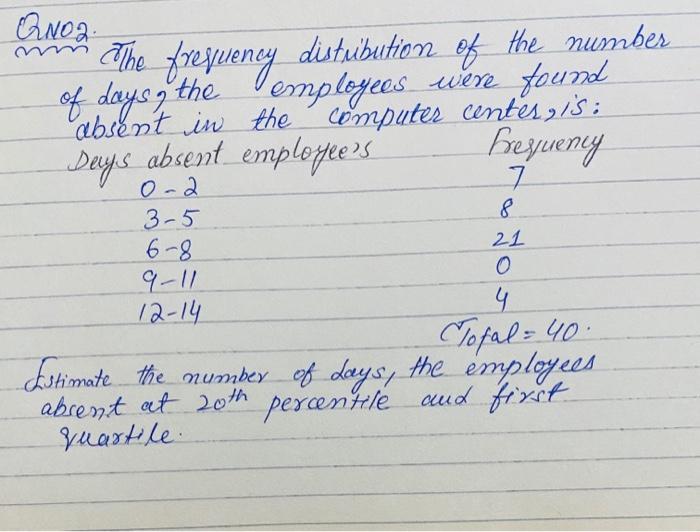 QNO2.
The frequency distribution of the number
of days, the employees were found
absent in the computer center, is:
Days absent employee's Frequency
0-2 7
3-5 8
6-8 21
9-11 0
12-14 4
Total = 40.
Estimate the number of days, the employees
absent at 20th percentile and first
quartile.